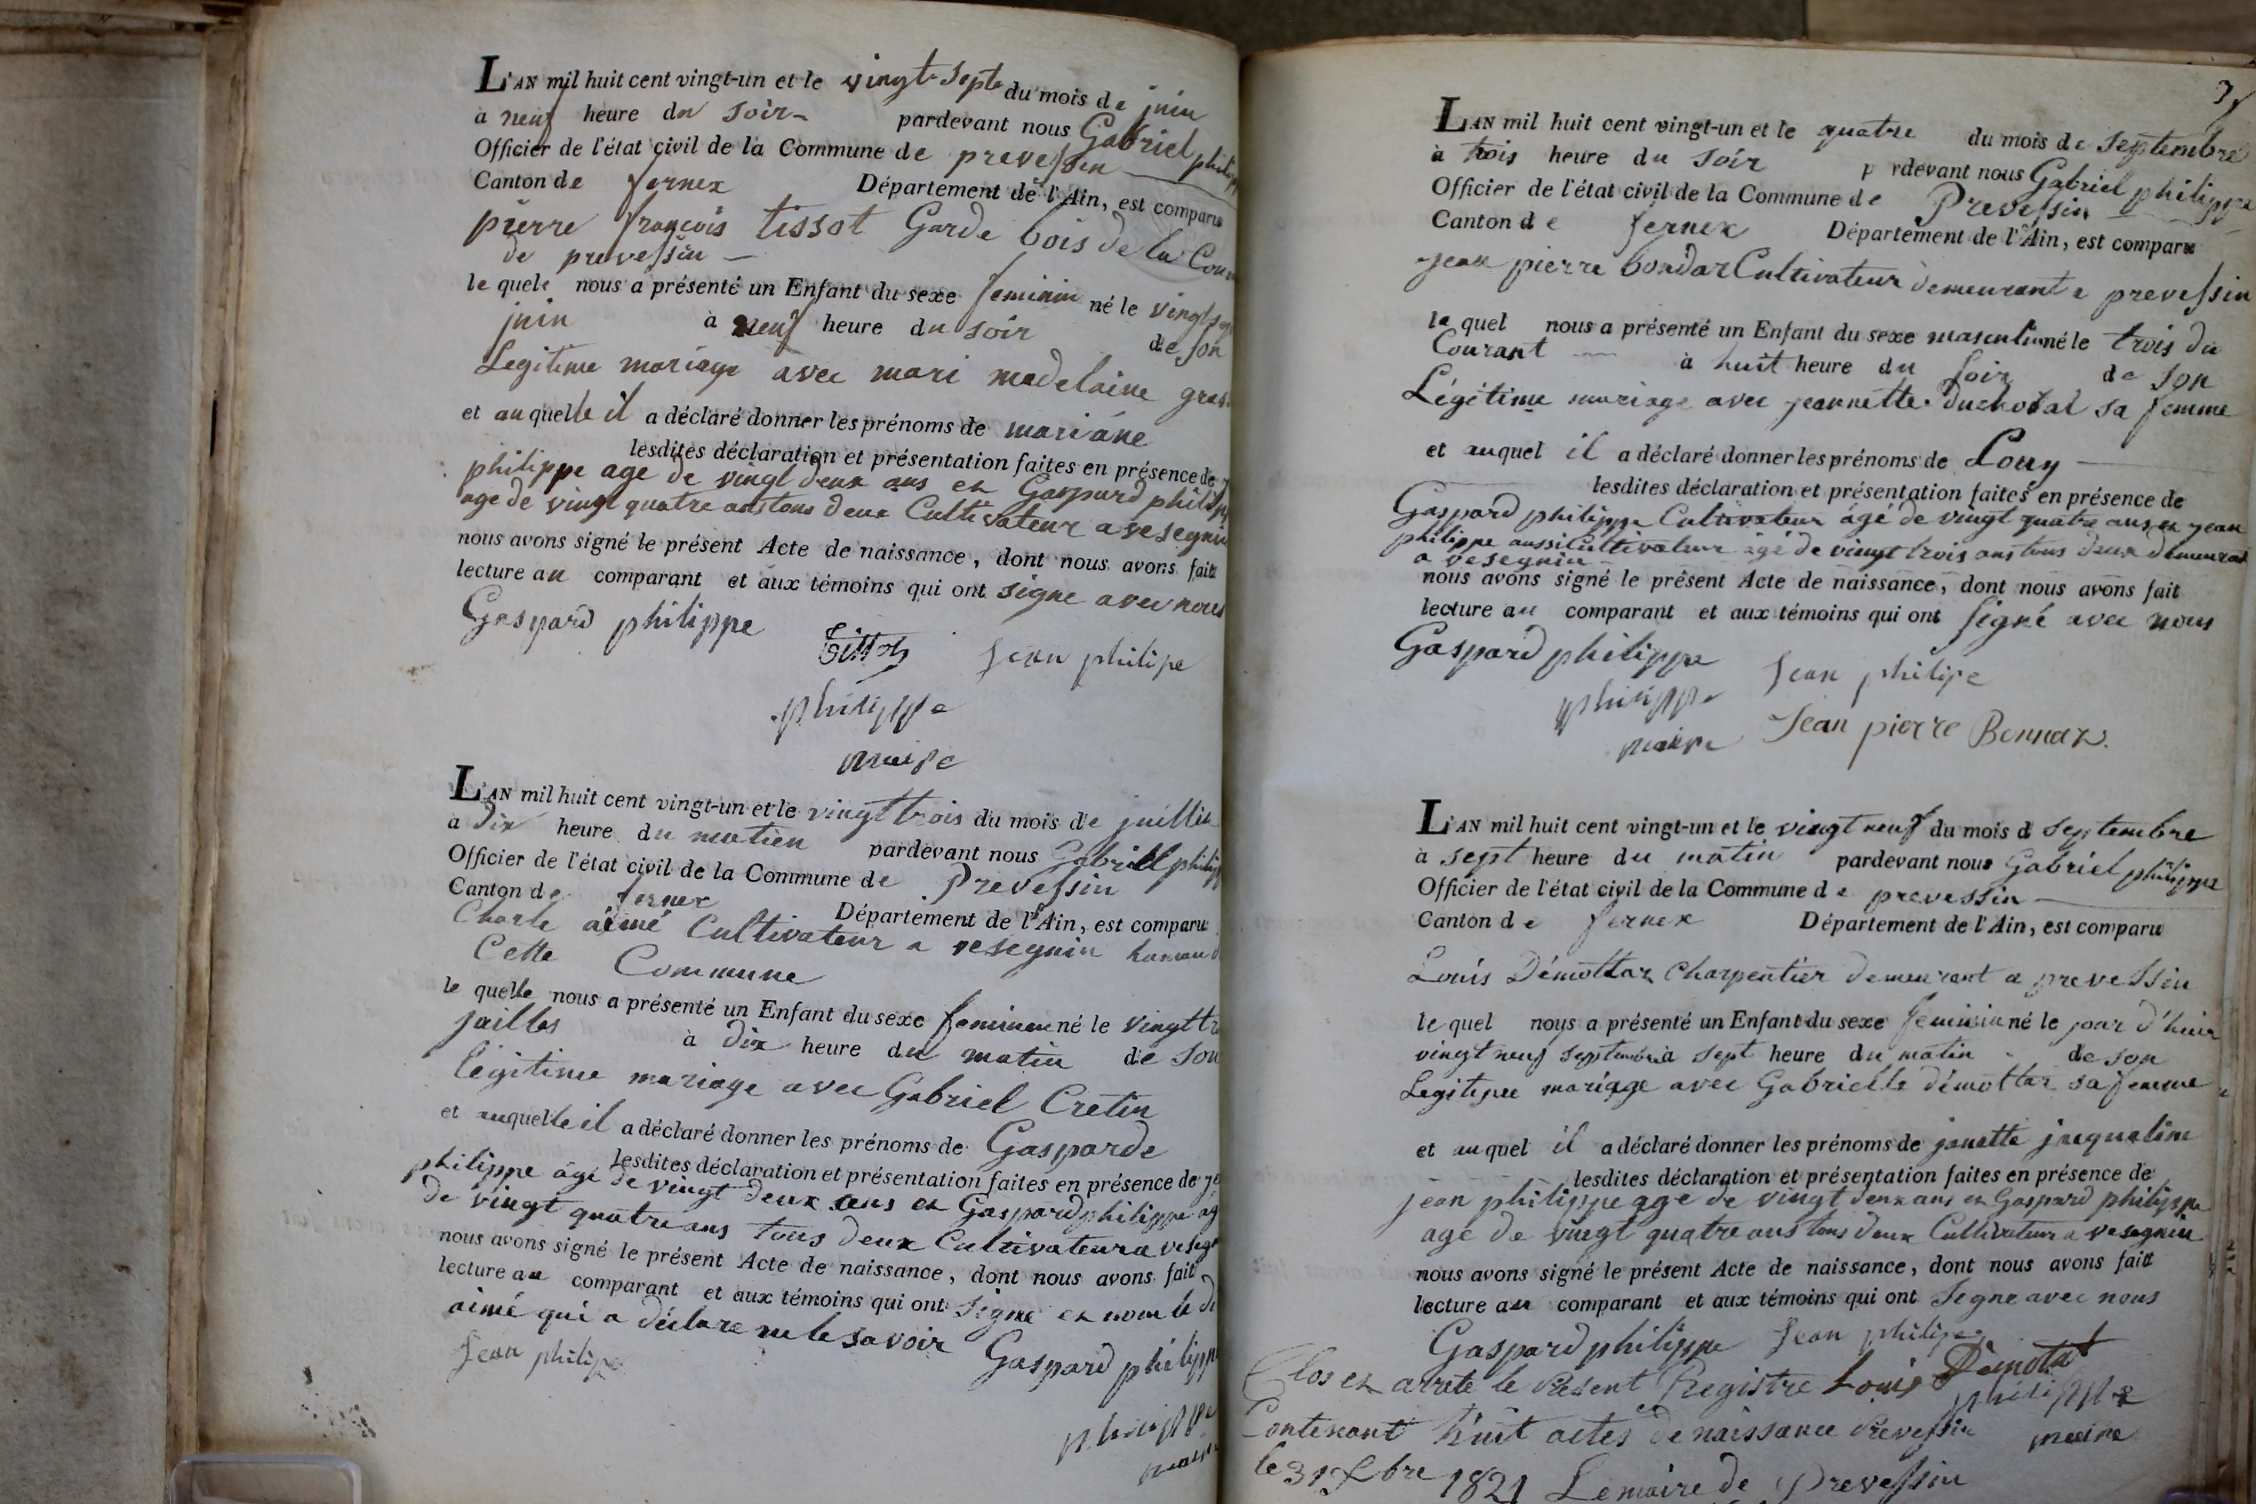 L'AN mil huit cent vingt-un et le vingt sept du mois de juin
à neuf heure du soir pardevant nous Gabriel philipp
Officier de l'état civil de la Commune de prevessin
Canton de fernex Département de l'Ain, est comparu
pierre françois tissot Garde bois de la Com
de prevessin
le quel nous a présenté un Enfant du sexe feminin né le vingt
juin à neuf heure du soir de son
Legitime mariage avec mari madelaine gras
et auquelle il a déclaré donner les prénoms de mariáne
lesdites déclaration et présentation faites en présence de
philippe age de vingt deux ans et Gaspard philip
age de vingt quatre ans tous deux Cultivateur a vesegnin
nous avons signé le présent Acte de naissance, dont nous avons fait
lecture au comparant et aux témoins qui ont signe avec nous
Gaspard philippe Tissot Jean philipe
philippe
maire
L'AN mil huit cent vingt-un et le vingt trois du mois de juillet
à dix heure du matien pardevant nous Gabriell philipp
Officier de l'état civil de la Commune de Prevessin
Canton de fernex Département de l'Ain, est comparu
Charle aimé Cultivateur a vesegnin hameau d
Cette Commune
le quelle nous a présenté un Enfant du sexe feminin né le vingt tr
juillet à dix heure du matin de son
légitime mariage avec Gabriel Cretin
et auquelle il a déclaré donner les prénoms de Gasparde
lesdites déclaration et présentation faites en présence de je
philippe âgé de vingt deux ans et Gaspard philippe ag
de vingt quatre ans tous deux Cultivateur a veseg
nous avons signé le présent Acte de naissance, dont nous avons fait
lecture au comparant et aux témoins qui ont signé et nom le di
aimé qui a déclare ne le savoir Gaspard philippe
Jean philipe
philippe
maire
L'AN mil huit cent vingt-un et le quatre du mois de septembre
à trois heure du soir pardevant nous Gabriel philippe
Officier de l'état civil de la Commune de Prevessin
Canton de fernex Département de l'Ain, est comparu
jean pierre bondaz Cultivateur demeurant a prevessin
le quel nous a présenté un Enfant du sexe masculin né le trois du
Courant à huit heure du soir de son
Légitime mariage avec jeannette duchotal sa femme
et auquel il a déclaré donner les prénoms de Louy
lesdites déclaration et présentation faites en présence de
Gaspard philippe Cultivateur âgé de vingt quatre ans et jean
philippe aussi Cultivateur âgé de vingt trois ans tous deux demeurant
a vesegnin
nous avons signé le présent Acte de naissance, dont nous avons fait
lecture au comparant et aux témoins qui ont signé avec nous
Gaspard philippe Jean philipe
philippe
maire Jean pierre Bonnaz
L'AN mil huit cent vingt-un et le vingt neuf du mois d septembre
à sept heure du matin pardevant nous Gabriel philippe
Officier de l'état civil de la Commune de prevessin
Canton de fernex Département de l'Ain, est comparu
Louis Démottaz Charpentier demeurant a prevessin
le quel nous a présenté un Enfant du sexe feminin né le jour d'huir
vingt neuf septembre à sept heure du matin de son
Legitime mariage avec Gabrielle démottaz sa femme
et auquel il a déclaré donner les prénoms de janette jaqueline
lesdites déclaration et présentation faites en présence de
jean philippe age de vingt deux ans et Gaspard philippe
age de vingt quatre ans tous deux Cultivateur a vesegnin
nous avons signé le présent Acte de naissance, dont nous avons fait
lecture au comparant et aux témoins qui ont Signe avec nous
Gaspard philippe Jean philipe
Clos et arrete le Present Registre Louis Demota
philippe
Contenant huit actes de naissance Prevessin maire
le 31 Xbre 1821 Lemaire de Prevessin